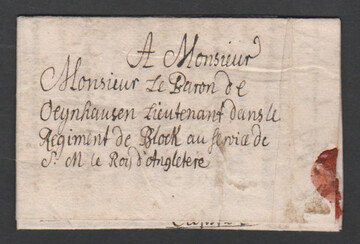 A Monsieur
Monsieur Le Baron de
Oeynhausen Lieutenant dans le
Regiment de Block au service de
S. M le Roi d'Angletere